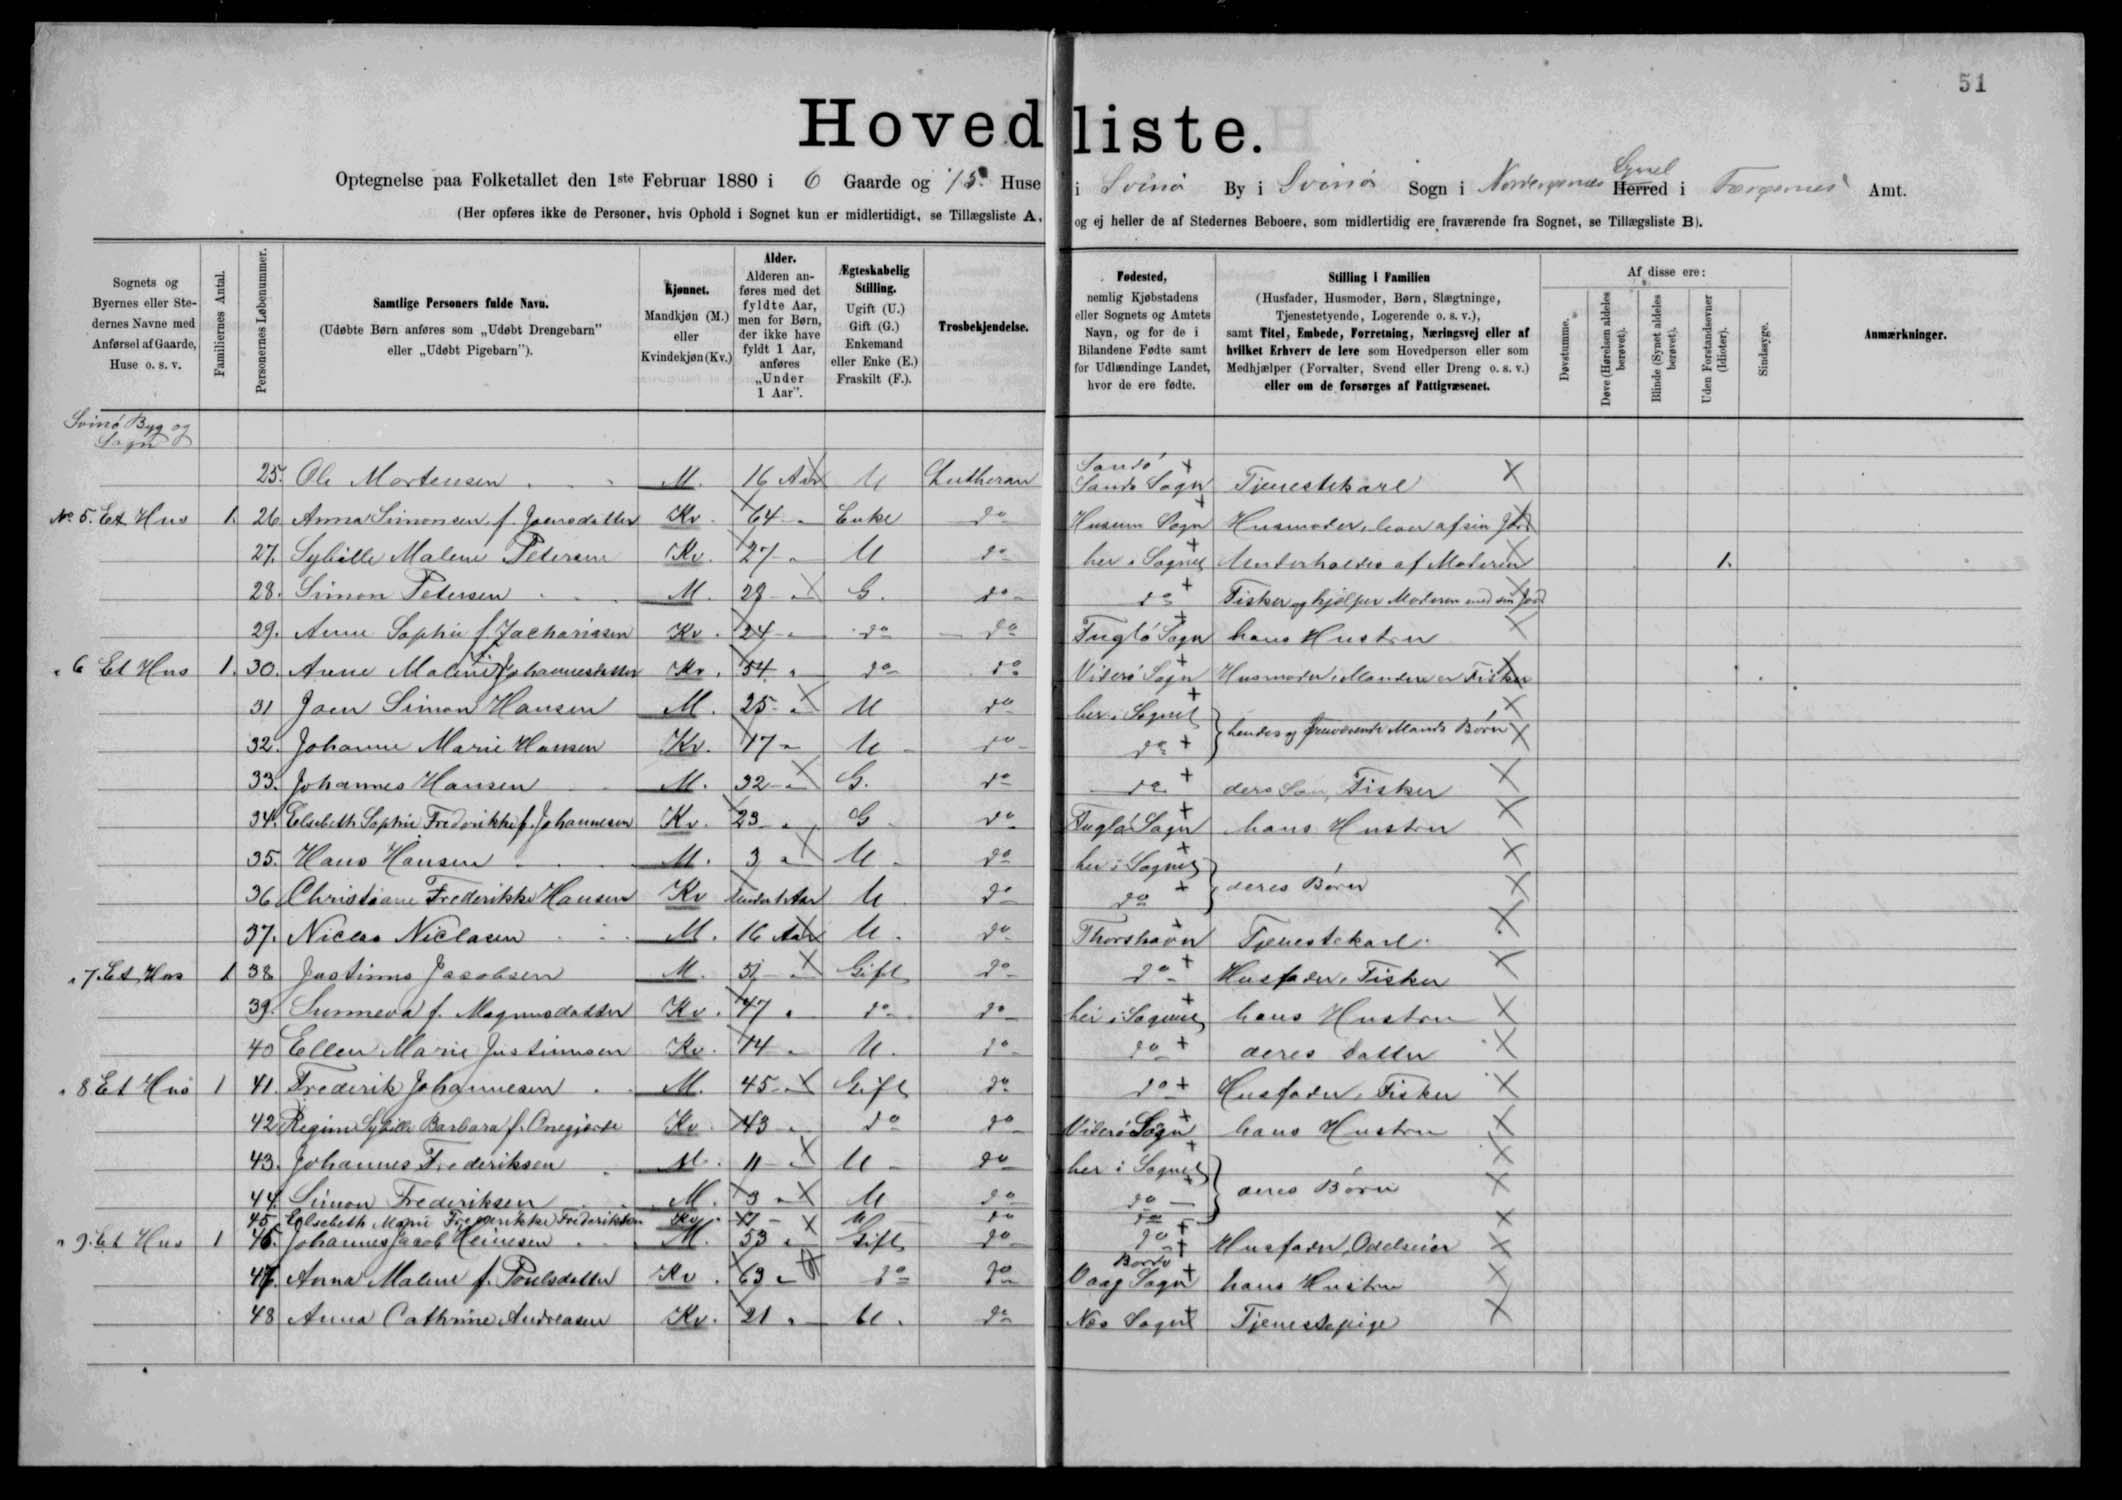 51
Hovedliste.
Optegnelse paa Folketallet den 1ste Februar 1880 i 6 Gaarde og 15 Huse i Svinø By i Svinø Sogn i Norderøernes Syssel Herred i Færøernes Amt.
(Her opføres ikke de Personer, hvis Ophold i Sognet kun er midlertidigt, se Tillægsliste A, og ej heller de af Stedernes Beboere, som midlertidig ere fraværende fra Sognet, se Tillægsliste B).
Sognets og Byernes eller Stedernes Navne med Anførsel af Gaarde, Huse o. s. v.
Familiernes Antal.
Personernes Løbenummer.
Samtlige Personers fulde Navn.
(Udøbte Børn anføres som „Udøbt Drengebarn" eller „Udøbt Pigebarn").
Kjønnet.
Mandkjøn (M.) eller Kvindekjøn (Kv.)
Alder.
Alderen anføres med det fyldte Aar, men for Børn, der ikke have fyldt 1 Aar, anføres „Under 1 Aar".
Ægteskabelig Stilling.
Ugift (U.) Gift (G.) Enkemand eller Enke (E.) Fraskilt (F.).
Trosbekjendelse.
Fødested,
nemlig Kjøbstadens eller Sognets og Amtets Navn, og for de i Bilandene Fødte samt for Udlændinge Landet, hvor de ere fødte.
Stilling i Familien
(Husfader, Husmoder, Børn, Slægtninge, Tjenestetyende, Logerende o. s. v.),
samt Titel, Embede, Forretning, Næringsvej eller af hvilket Erhverv de leve som Hovedperson eller som Medhjælper (Forvalter, Svend eller Dreng o. s. v.) eller om de forsørges af Fattigvæsenet.
Af disse ere:
Døvstumme.
Døve (Hørelsen aldeles berøvet).
Blinde (Synet aldeles berøvet).
Uden Forstandsevner (Idioter).
Sindssyge.
Anmærkninger.
Svinø Byg og Sogn
25. Ole Mortensen M. 16 Aar U Lutheran Sandø Sands Sogn Tjenestekarl
No 5. Et Hus 1. 26. Anna Simonsen f. Joensdatter Kv. 64 Enke do Husum Sogn Husmoder, lever af sin Jord
27. Sybille Malene Petersen Kv. 27 U do her i Sognet Underholdes af Moderen 1.
28. Simon Petersen M. 28 G. do do Fisker og hjelper Moderen med sin Jord
29. Anne Sophie f. Zachariasen Kv. 24 do do Fuglø Sogn hans Hustru
" 6 Et Hus 1. 30. Anne Malene f. Johannesdatter Kv. 54 do do Viderø Sogn Husmoder, Manden er Fisker
31 Joen Simon Hansen M. 25 U do her i Sognet
32. Johanne Marie Hansen Kv. 17 U do do hendes og fraværende Mands Børn
33. Johannes Hansen M. 32 G. do do deres Søn, Fisker
34. Elsebeth Sophie Frederikke f. Johannesen Kv. 23 G do Fuglø Sogn hans Hustru
35. Hans Hansen M. 3 U. do her i Sognet
36 Christiane Frederikke Hansen Kv Under 1 Aar U do do deres Børn
37. Niclas Niclasen M. 16 Aar U. do Thorshavn Tjenestekarl
" 7. Et Hus 1 38 Justinus Jacobsen M. 51 Gift do do Husfader, Fisker
39. Sunneva f. Magnusdatter Kv. 47 do do her i Sognet hans Hustru
40 Ellen Marie Justinusen Kv. 14 U. do do deres Datter
" 8 Et Hus 1 41. Frederik Johannesen M. 45 Gift do do Husfader, Fisker
42 Regine Sybille Barbara f. Kv. 43 do do Viderø Sogn hans Hustru
43. Johannes Frederiksen M. 11 U do her i Sognet
44. Simon Frederiksen M. 3 U do do deres Børn
45. Elsebeth Marie Frederikke Frederiksen Kv. U do do
" 9. Et Hus 1 46. Johannes Jacob Heinesen M. 53 Gift do do Husfader, Odelseier
47. Anna Malene f. Poulsdatter Kv. 63 do do Bordø Vaag Sogn hans Hustru
48 Anna Cathrine Andreasen Kv. 21 U. do Nes Sogn Tjenestepige